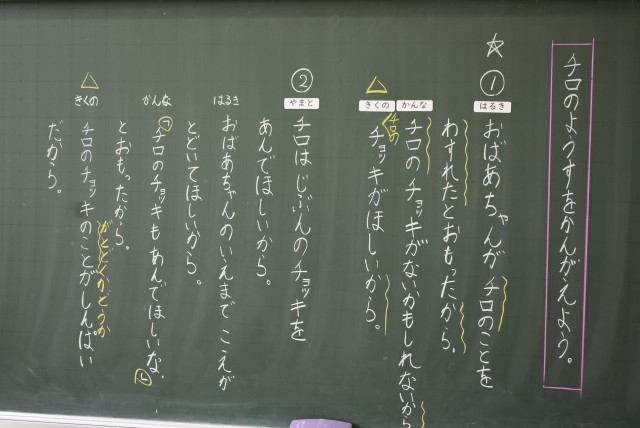 チロのようすをかんがえよう。
☆
①
はるき
おばあちゃんがチロのことを
わすれたとおもったから。
かんな
チロのチョッキがないかもしれないから
△
きくの
チロの
チョッキがほしいから。
②
やまと
チロはじぶんのチョッキを
あんでほしいから。
はるき
おばあちゃんのいえまでこえが
とどいてほしいから。
かんな
「チロのチョッキもあんでほしいな。」
とおもったから。
△
きくの
がとどくかどうか
チロのチョッキのことがしんぱい
だから。